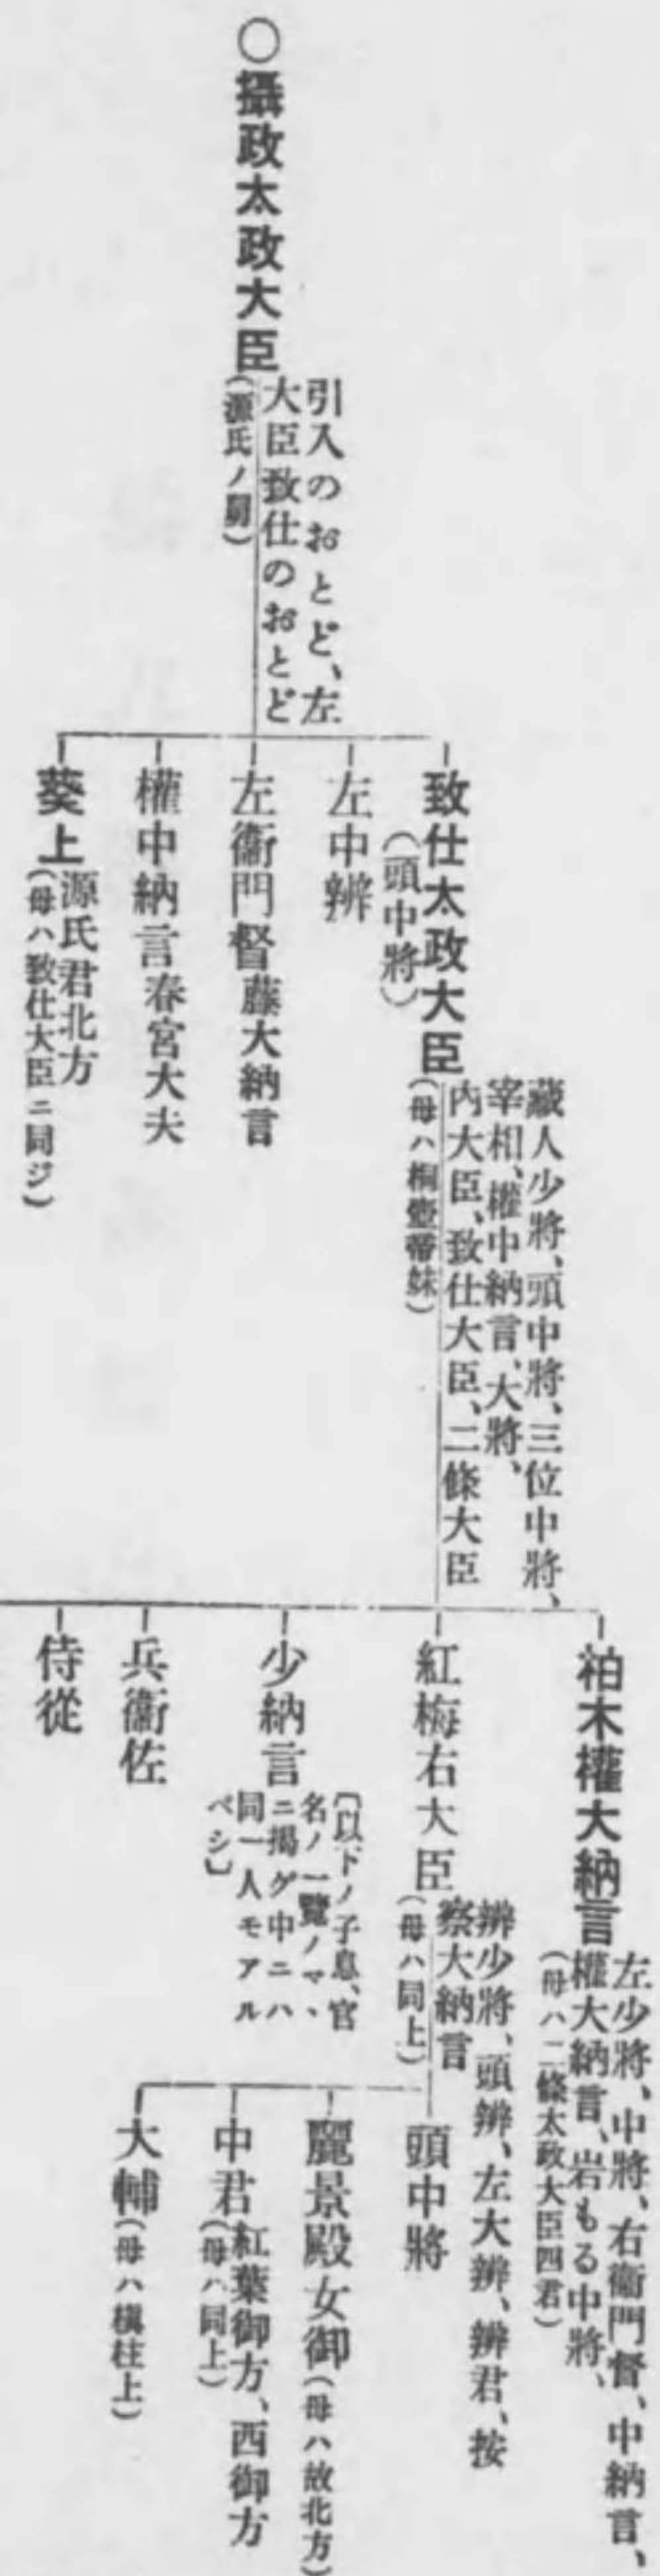 ○攝政太政大臣
引入のおとど、左
大臣致仕のおとど
(源氏ノ舅)
致仕太政大臣
(頭中將)
藏人少將、頭中將、三位中將、
宰相、權中納言、大將、
內大臣、致仕大臣、二條大臣
(母ハ桐壺帝妹)
左中辨
左衞門督藤大納言
權中納言春宮大夫
葵上
源氏君北方
(母ハ致仕大臣ニ同ジ)
柏木權大納言
左少將、中將、右衞門督、中納言、
權大納言、岩もる中將、
(母ハ二條太政大臣四君)
紅梅右大臣
辨少將、頭辨、左大辨、辨君、按
察大納言
(母ハ同上)
少納言
〔以下ノ子息、官
名ノ一覽ノマヽ
ニ揭グ中ニハ
同一人モアル
ベシ〕
兵衞佐
侍從
頭中將
麗景殿女御(母ハ故北方)
中君
紅葉御方、西御方
(母ハ同上)
大輔(母ハ槇柱上)